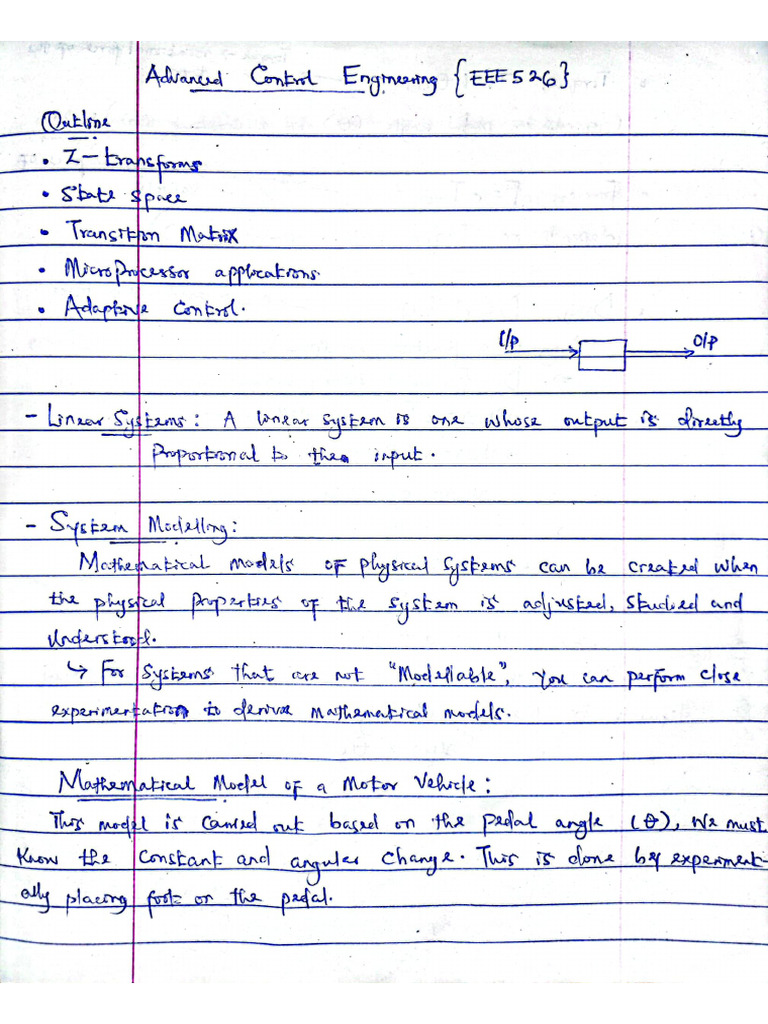 Advanced Control Engineering {EEE526}
Outline
• Z-transforms
• State space
• Transition Matrix
• Microprocessor applications
• Adaptive control.
I/p O/p
- Linear Systems: A linear system is one whose output is directly
proportional to the input.
- System Modelling:
Mathematical models of physical systems can be created when
the physical properties of the system is adjusted, studied and
understood.
↳ For systems that are not "Modellable", you can perform close
experimentation to derive mathematical models.
Mathematical Model of a Motor Vehicle:
This model is carried out based on the pedal angle (θ), we must
know the constant and angular change. This is done by experiment-
ally placing foot on the pedal.